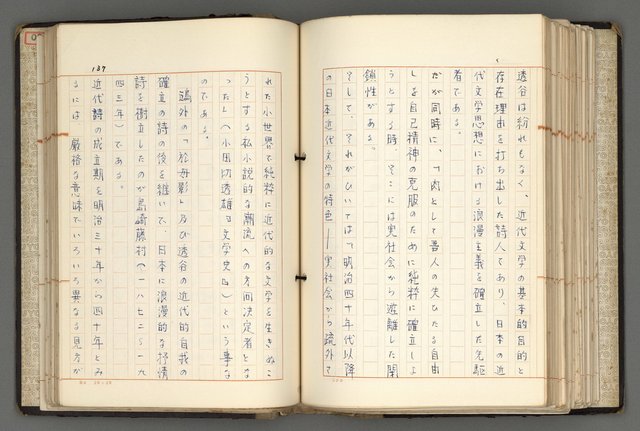 透谷は紛れもなく、近代文学の基本的目的と
存在理由を打ち出した詩人であり、日本の近
代文学思想における浪漫主義を確立した先駆
者である。
だが同時に、「肉として吾人の失ひたる自由
しを自己精神の克服のために純粋に確立しよ
うとする時、そこには実社会から遊離した閉
鎖性がある。
そして、それがひいては「明治四十年代以降
の日本近代文学の特色――実社会から疏外さ
139
れた小世界で純粋に近代的な文学を生きぬこ
うとする私小説的な潮流への方向決定者とな
った」(小田切透雄『文学史』)という事な
のである。
鴎外の「於母影」及び透谷の近代的自我の
確立の詩の後を継いで、日本に浪漫的な抒情
詩を樹立したのが島崎藤村(一八七二~一九
四三年)である。
近代詩の成立期を明治三十年から四十年とみ
るには、厳格な意味でいろいろ異なる見方が